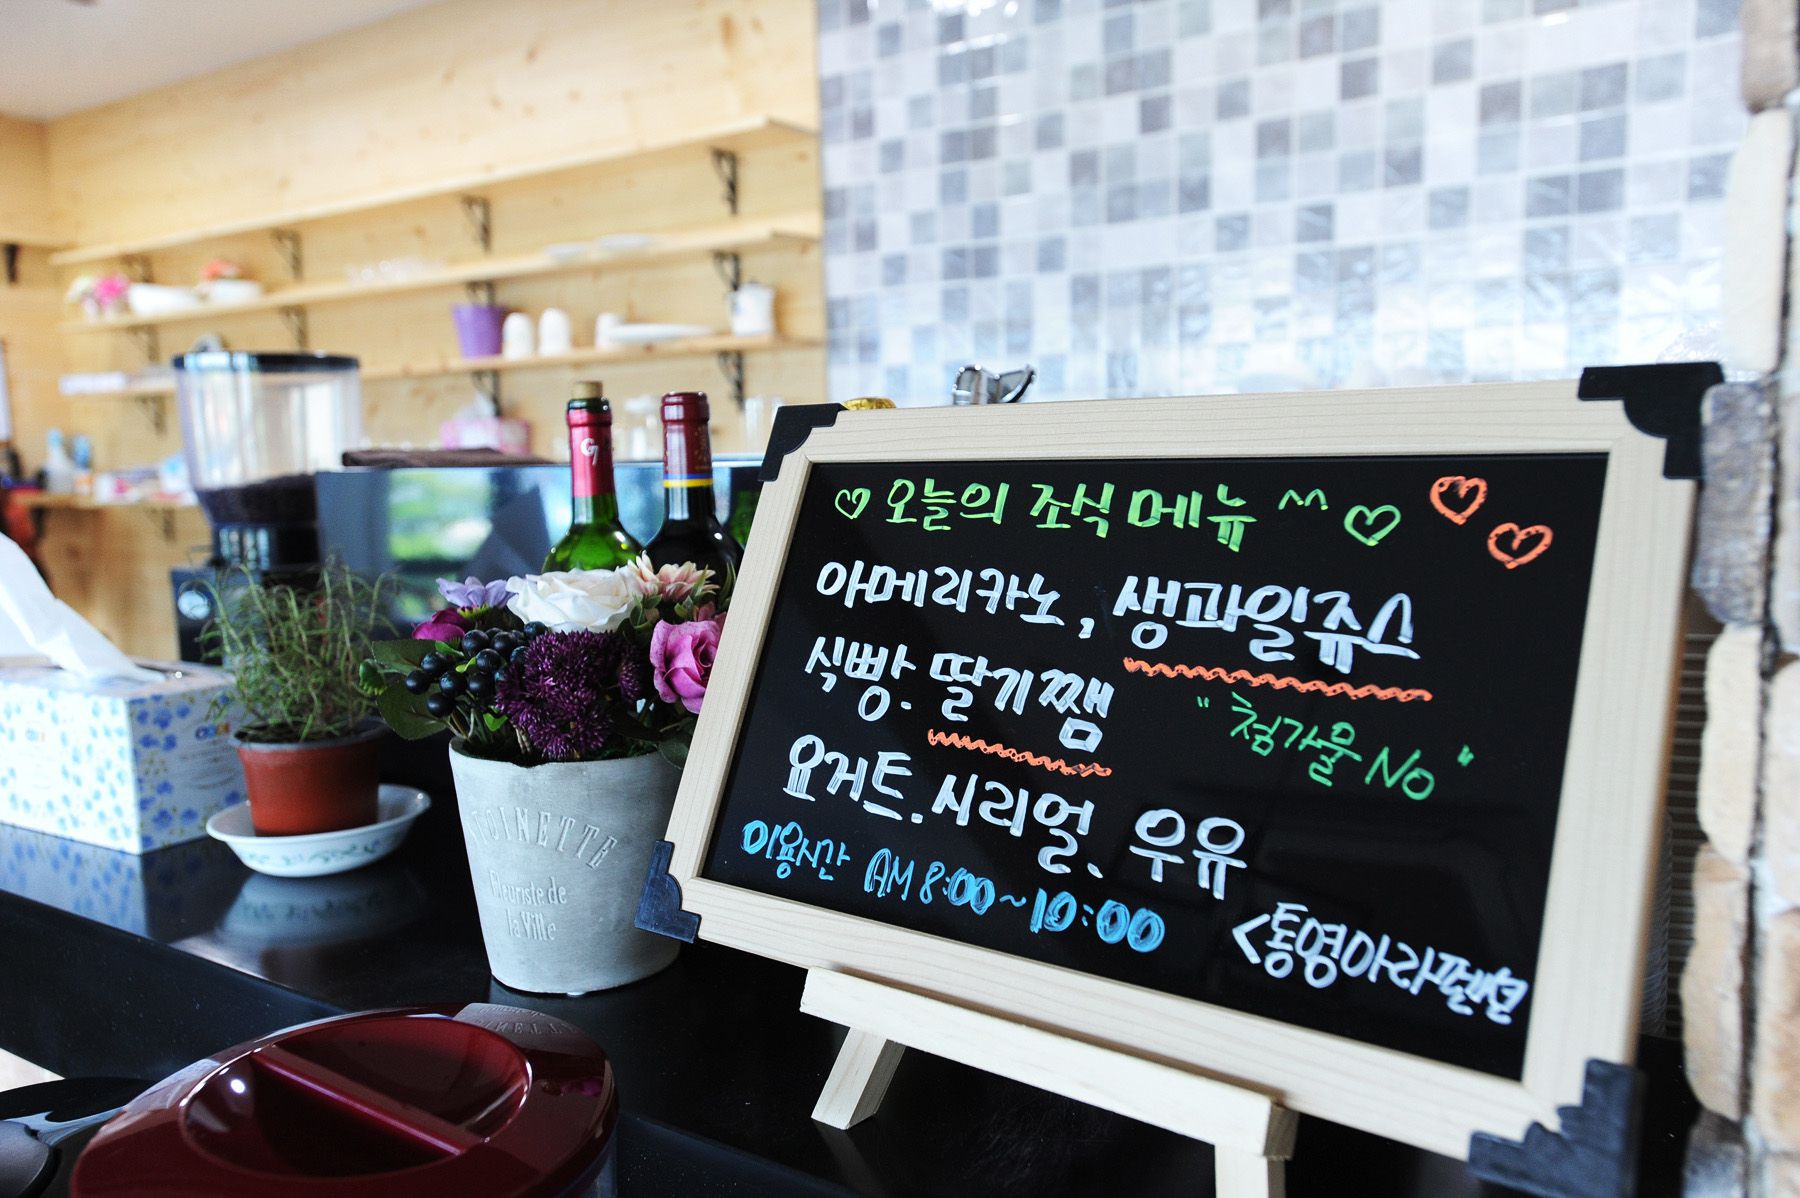 오늘의 조식 메뉴 ^^
아메리카노, 생과일쥬스
식빵. 딸기쨈
"첨가물 NO"
요거트. 시리얼. 우유
이용시간 AM 8:00~10:00
<통영아라펜션
G7
TOINETTE
Fleuriste de
la Ville